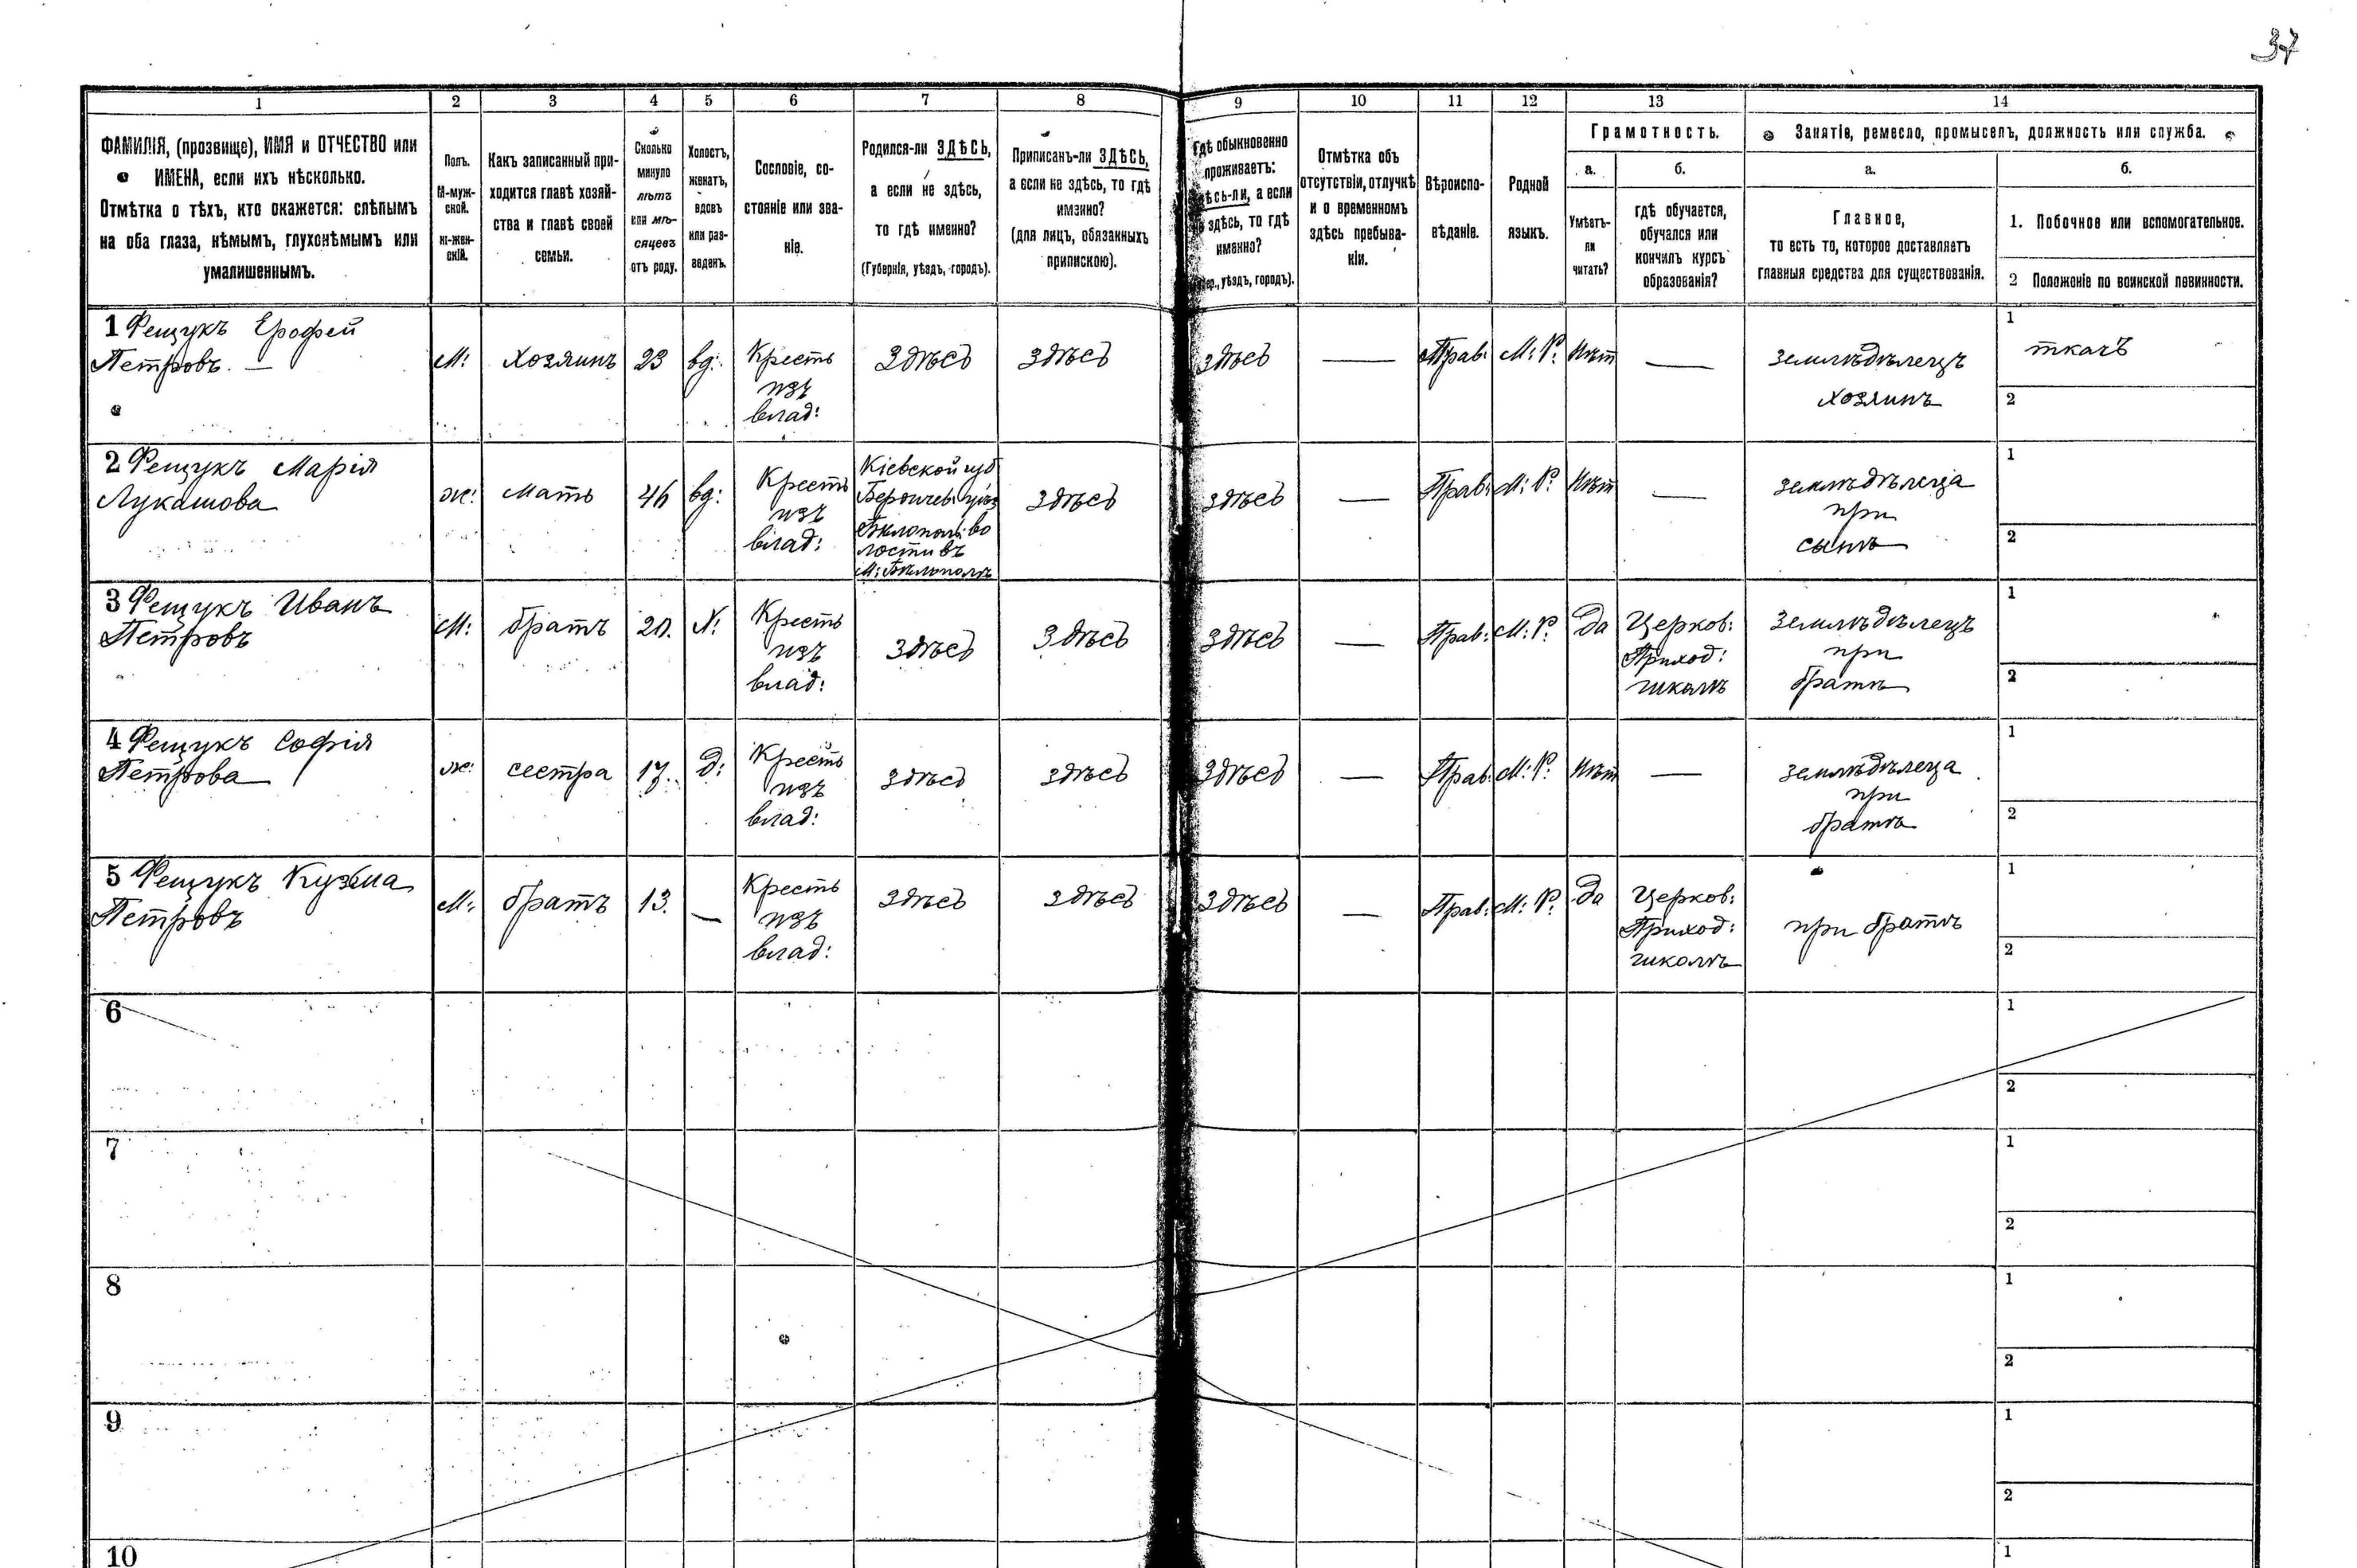 37
1 2 3 4 5 6 7 8 9 10 11 12 13 14
ФАМИЛІЯ, (прозвище), ИМЯ и ОТЧЕСТВО или
ИМЕНА, если ихъ нѣсколько.
Отмѣтка о тѣхъ, кто окажется: слѣпымъ
на оба глаза, нѣмымъ, глухонѣмымъ или
умалишеннымъ.
Полъ.
М-муж-
ской.
ж-жен-
скій.
Какъ записанный при-
ходится главѣ хозяй-
ства и главѣ своей
семьи.
Сколько
минуло
лѣтъ
или мѣ-
сяцевъ
отъ роду.
Холостъ,
женатъ,
вдовъ
или раз-
веденъ.
Сословіе, со-
стояніе или зва-
ніе.
Родился-ли ЗДѢСЬ,
а если не здѣсь,
то гдѣ именно?
(Губернія, уѣздъ, городъ).
Приписанъ-ли ЗДѢСЬ,
а если не здѣсь, то гдѣ
именно?
(для лицъ, обязанныхъ
припискою).
Гдѣ обыкновенно
проживаетъ:
здѣсь-ли, а если
не здѣсь, то гдѣ
именно?
уѣздъ, городъ).
Отмѣтка объ
отсутствіи, отлучкѣ
и о временномъ
здѣсь пребыва-
ніи.
Вѣроиспо-
вѣданіе.
Родной
языкъ.
Грамотность.
а. б.
Умѣетъ-
ли
читать?
гдѣ обучается,
обучался или
кончилъ курсъ
образованія?
Занятіе, ремесло, промыселъ, должность или служба.
а. б.
Главное,
то есть то, которое доставляетъ
главныя средства для существованія.
1. Побочное или вспомогательное.
2 Положеніе по воинской повинности.
1 Фещукъ Ерофей
Петровъ. —
М:
Хозяинъ
23
вд:
Кресть
изъ
влад:
Здѣсь
здѣсь
здѣсь
—
Прав:
М: Р:
Нѣт
—
землѣдѣлецъ
хозяинъ
1
ткачъ
2
2 Фещукъ Марія
Лукашова
ж:
мать
46
вд:
Кресть
изъ
влад:
Кіевской губ
Бердичев: уѣз
Бѣлопол: во
лости въ
М: Бѣлополѣ
здѣсь
здѣсь
—
Прав:
М: Р:
Нѣт
—
землѣдѣлеца
при
сынѣ
1
2
3 Фещукъ Иванъ
Петровъ
М:
братъ
20.
Х:
Кресть
изъ
влад:
здѣсь
Здѣсь
здѣсь
—
Прав:
М: Р:
Да
Церков:
Приход:
школѣ
Землѣдѣлецъ
при
братѣ
1
2
4 Фещукъ Софія
Петрова
ж:
сестра
17.
д:
Кресть
изъ
влад:
здѣсь
здѣсь
здѣсь
—
Прав:
М: Р:
Нѣт
—
землѣдѣлеца
при
братѣ
1
2
5 Фещукъ Кузьма
Петровъ
М:
братъ
13.
—
Кресть
изъ
влад:
здѣсь
здѣсь
здѣсь
—
Прав:
М: Р:
Да
Церков:
Приход:
школѣ
при братѣ
1
2
6
1
2
7
1
2
8
1
2
9
1
2
10
1